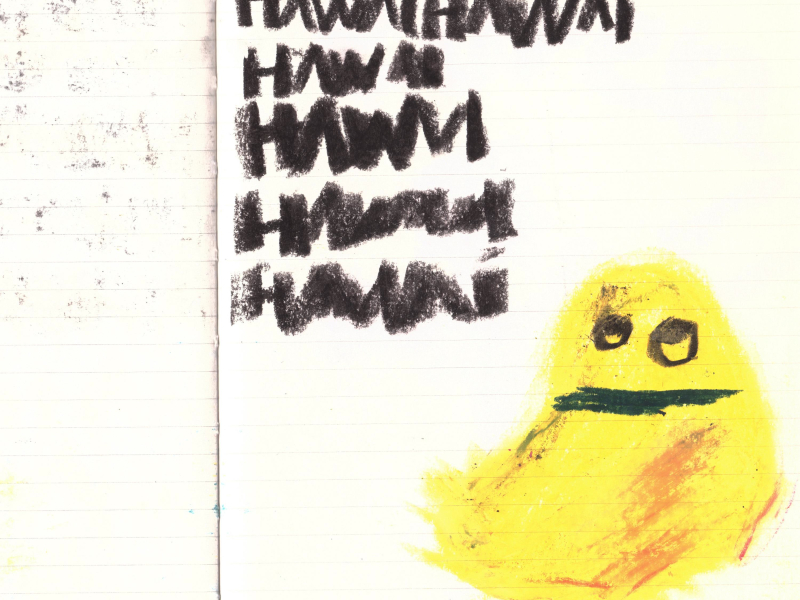 HAWAI HAWAI
HAWAI
HAWAI
HAWAI
HAWAI